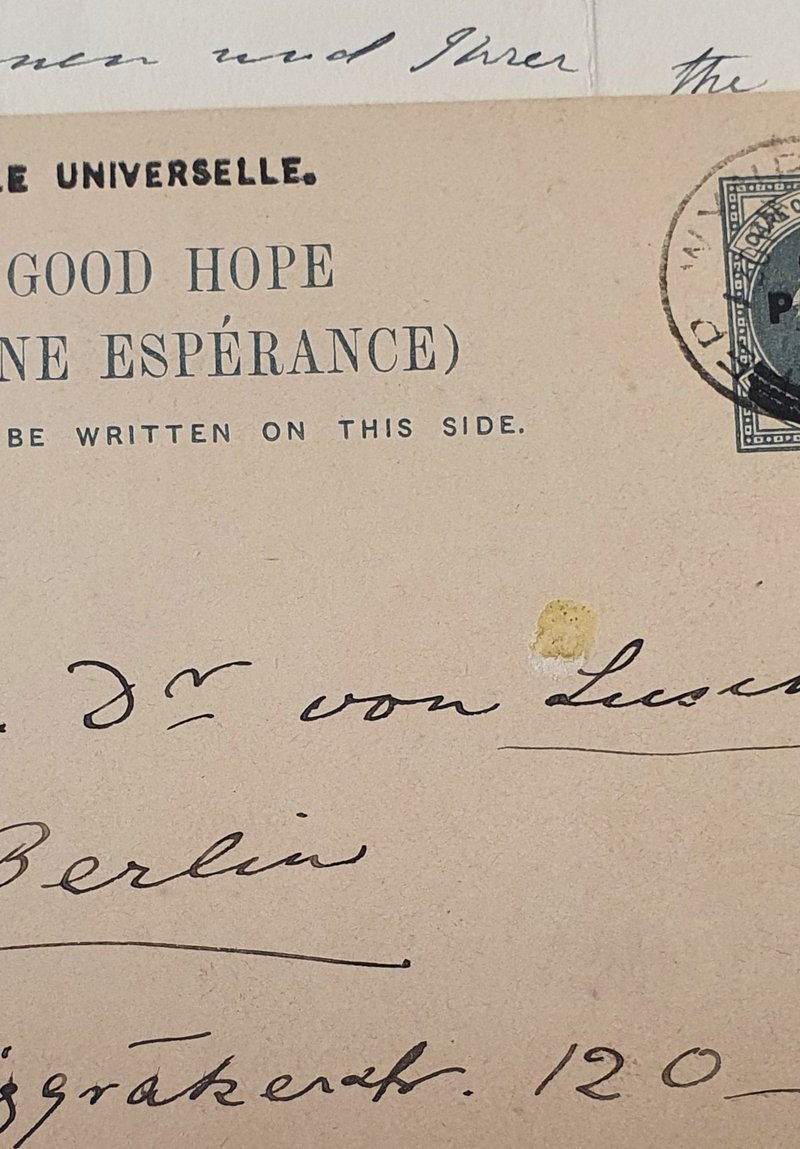 nen und Ihrer the
LE UNIVERSELLE.
GOOD HOPE
NE ESPÉRANCE)
BE WRITTEN ON THIS SIDE.
P
Dr von Lusch
Berlin
ggrätzerstr. 120